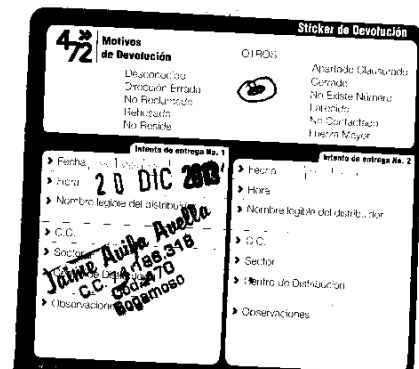 Sticker de Devolución
4 72 Motivos de Devolución
OTROS
Desconocido
Dirección Errada
No Reclamado
Rehusado
No Reside
Apartado Clausurado
Cerrado
No Existe Número
Fallecido
No Contactado
Fuerza Mayor
Intento de entrega No. 1
Fecha
20 DIC 2013
Hora
Nombre legible del distribuidor
Jaime Avila Avella
C.C.
Sector
Cod. 270
Sogamoso
Observaciones
Intento de entrega No. 2
Fecha
Hora
Nombre legible del distribuidor
C.C.
Sector
Centro de Distribución
Observaciones